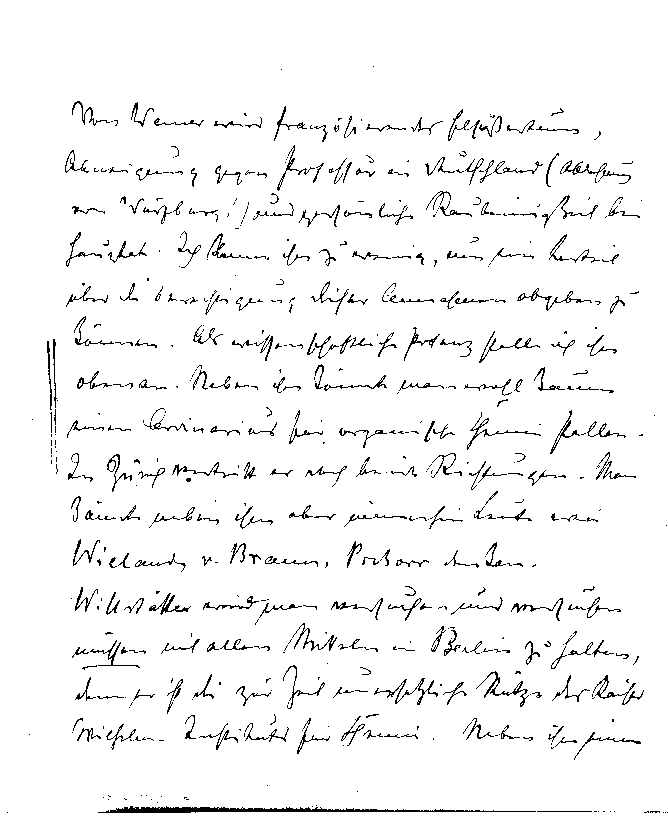 Von Werner wird französierendes Elsäßertum,
Abneigung gegen Professur in Deutschland (Ablehnung
von Würzburg!) und persönliche Rauhbeinigkeit bei
Ich kenne ihn zu wenig, um ein Urteil
über die Berechtigung dieser abgeben zu
können. Als wissenschaftliche Potenz stelle ich ihn
obenan. Neben ihn könnte man wohl kaum
einen Ordinarius für organische Chemie stellen.
In Zürich vertritt er noch beide Richtungen. Man
könnte neben ihm aber immerhin Leute wie
Wieland, v. Braun, Pschorr denken.
Willstätter wird man versuchen und versuchen
müssen mit allen Mitteln in Berlin zu halten,
denn er ist die zur Zeit unersetzliche Stütze des Kaiser
Wilhelm-Instituts für Chemie. Neben ihn einen